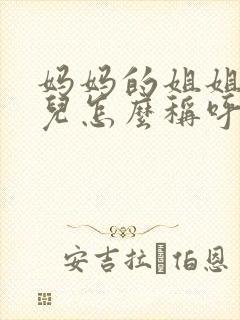 妈妈的姐姐
兒怎麼稱呼
安吉拉·伯恩